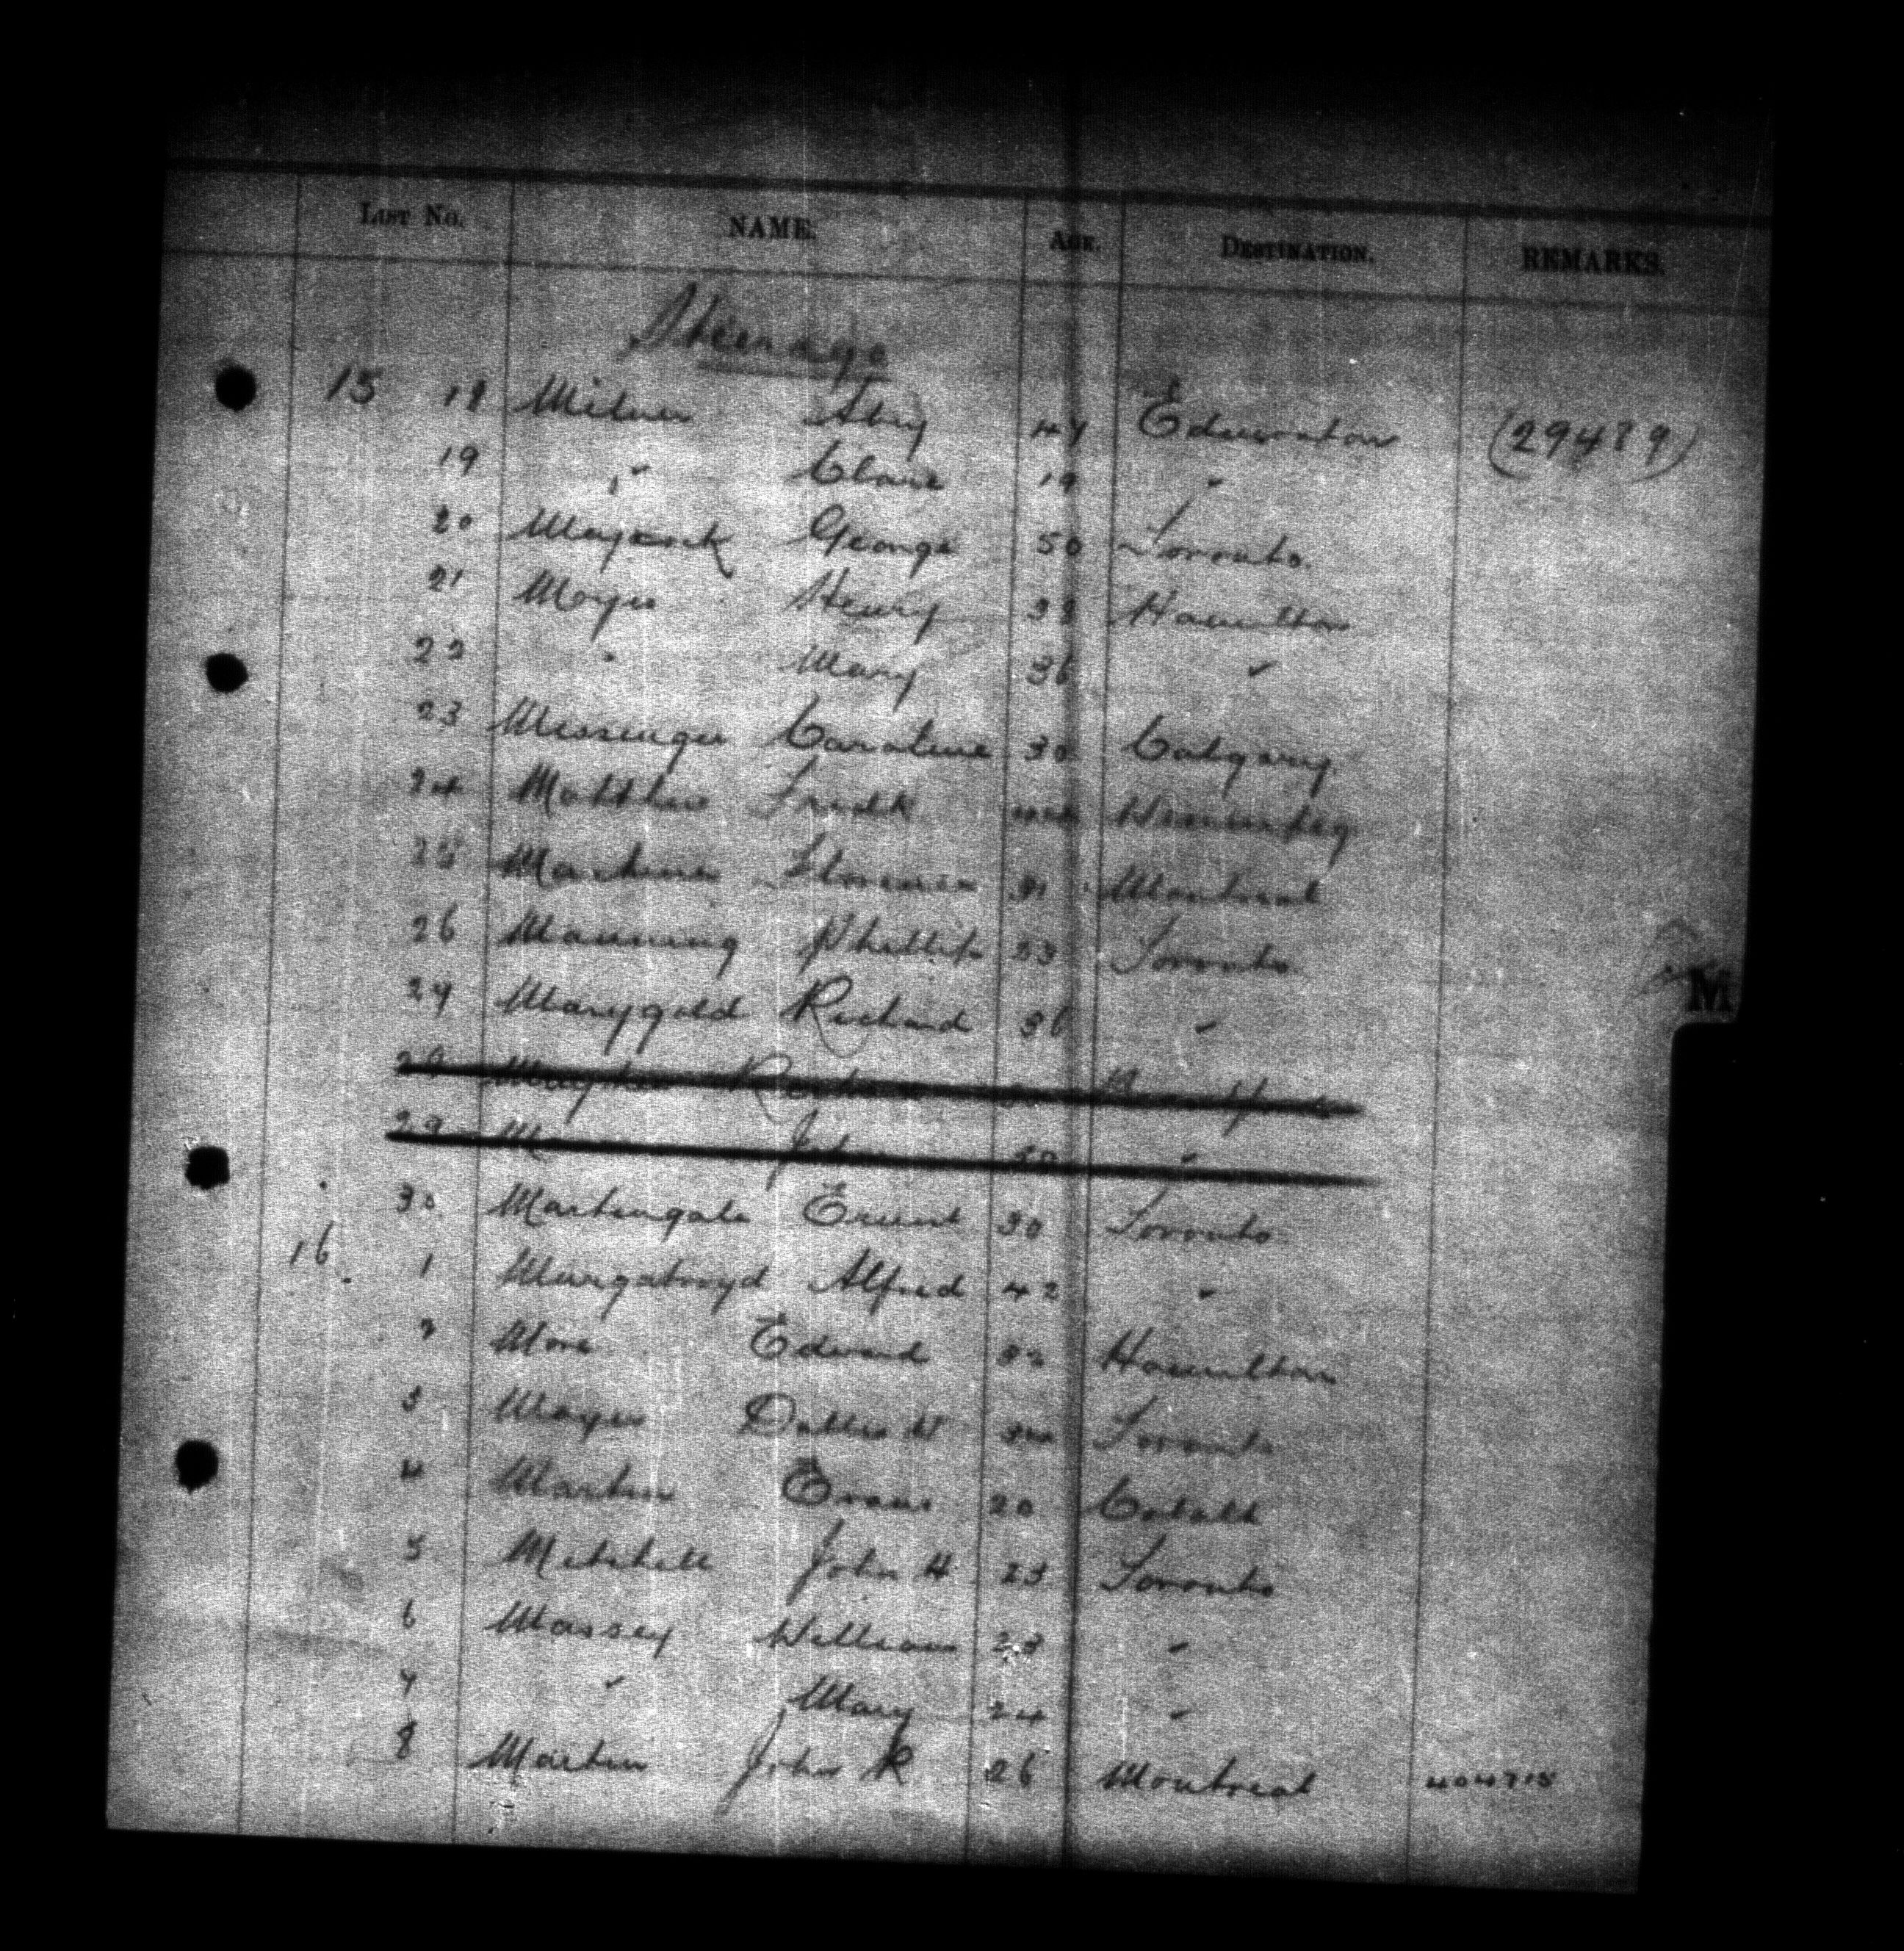 LIST No. NAME. AGE. DESTINATION. REMARKS.
Steerage
15 18 Milner Abey 47 Edmonton (29489)
19 " Clare 19 "
20 Maycock George 50 Toronto.
21 Moyes Henry 38 Hamilton
22 " Mary 36 "
23 Messenger Caroline 30 Calgary.
24 Matthews Fredk 44 Winnipeg
25 Florence 31 Montreal
26 Manning Phillip 33 Toronto.
27 Marygold Richard 36 "
M
29 M John "
30 Martingale Ernest 30 Toronto
16 1 Murgatroyd Alfred 42 "
2 More Edward 32 Hamilton
3 Mayes Toronto
4 Martin Evans 20 Cobalt
5 Mitchell John H 23 Toronto
6 Massey William 23 "
7 " Mary 24 "
8 Martin John R 26 Montreal 404715